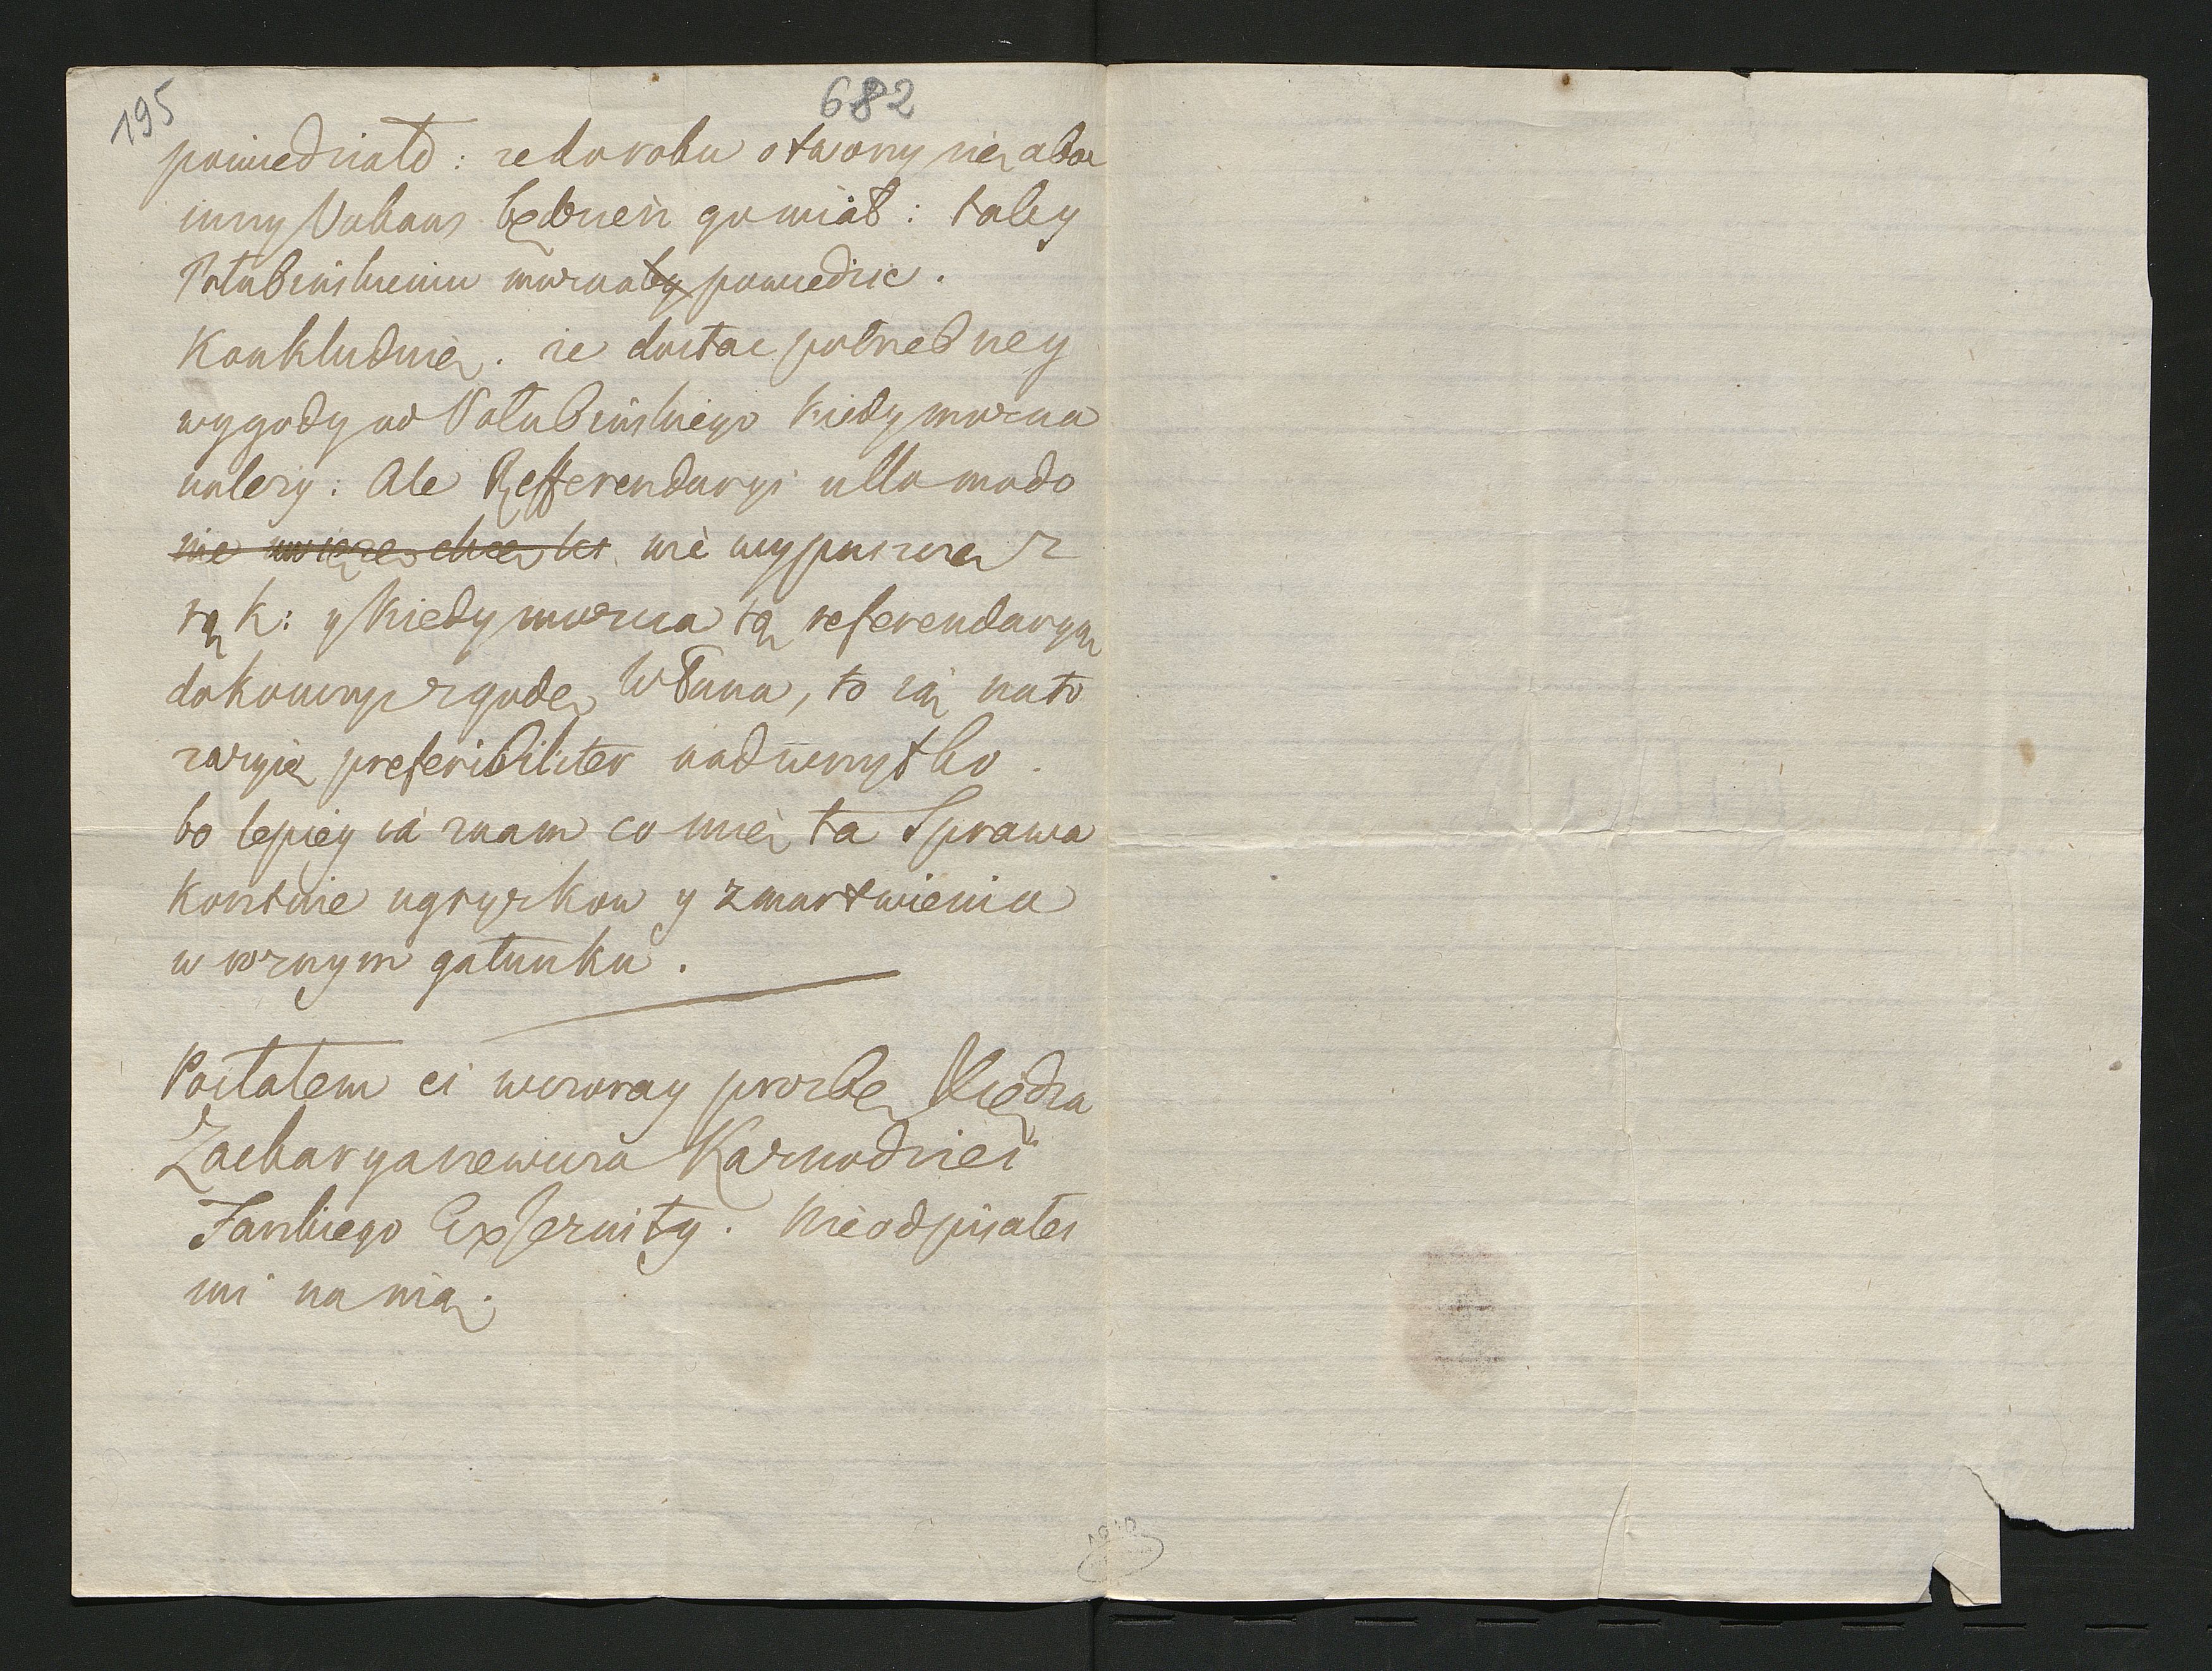 195
682
powiedziało: ze do roku otworzy się albo
inny Vakans będziesz go miał: takby
Połubinskiemu można powiedzic.
Konkluduię. ze dostac potrzebney
wygody od Połubinskiego kiedy mozna
nalezy: Ale Refferendaryi ullo modo
nie chcę nie wypuszczę z
rąk: y kiedy mozna tą referendaryą
dokonczyc zgodę WPana, to ią na to
zazyię preferibiliter nad wszytko.
bo lepiey ia znam co mię ta Sprawa
kosztuie ugryzkow y zmartwienia
w roznym gatunku.
Posłałem ci wczoray prozbę Xiędza
Zacharyasewicza Kaznodziei
Farskiego ExJezuity. Nie odpisałes
mi na nią.